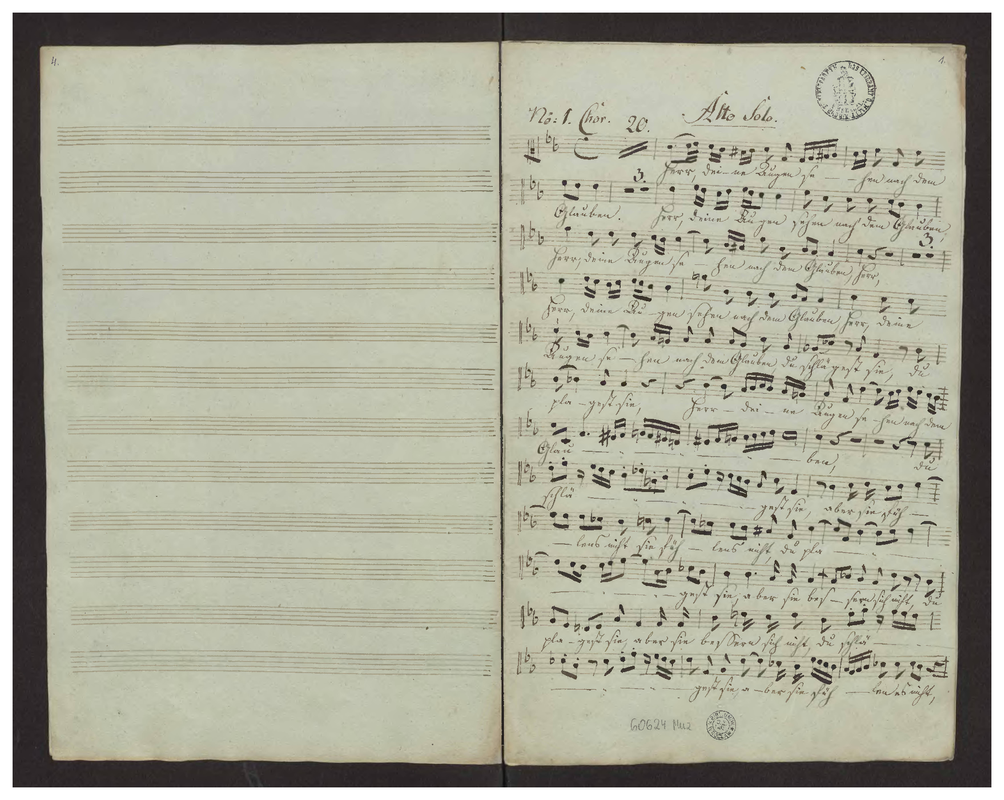 4.
1.
No: 1. Chor. 20. Alto Solo.
Herr, dei-ne Augen se — hen nach dem
3.
Glauben. Herr, deine Au-gen sehen nach dem Glauben,
3.
Herr, deine Augen se hen nach dem Glauben, Herr,
Herr, deine Au-gen sehen nach dem Glauben, Herr, deine
Augen se — hen nach dem Glauben du schlä gest sie, du
pla-gest sie, Herr — dei-ne Augen se hen nach dem
Glau — ben, du
schlä — gest sie, aber sie füh —
— lens nicht sie füh — lens nicht, du pla —
— gest sie, aber sie bes — sern sich nicht, du
pla-gest sie, aber sie bessern sich nicht, du schlä —
— gest sie, a-ber sie füh — len es nicht,
60624 Muz